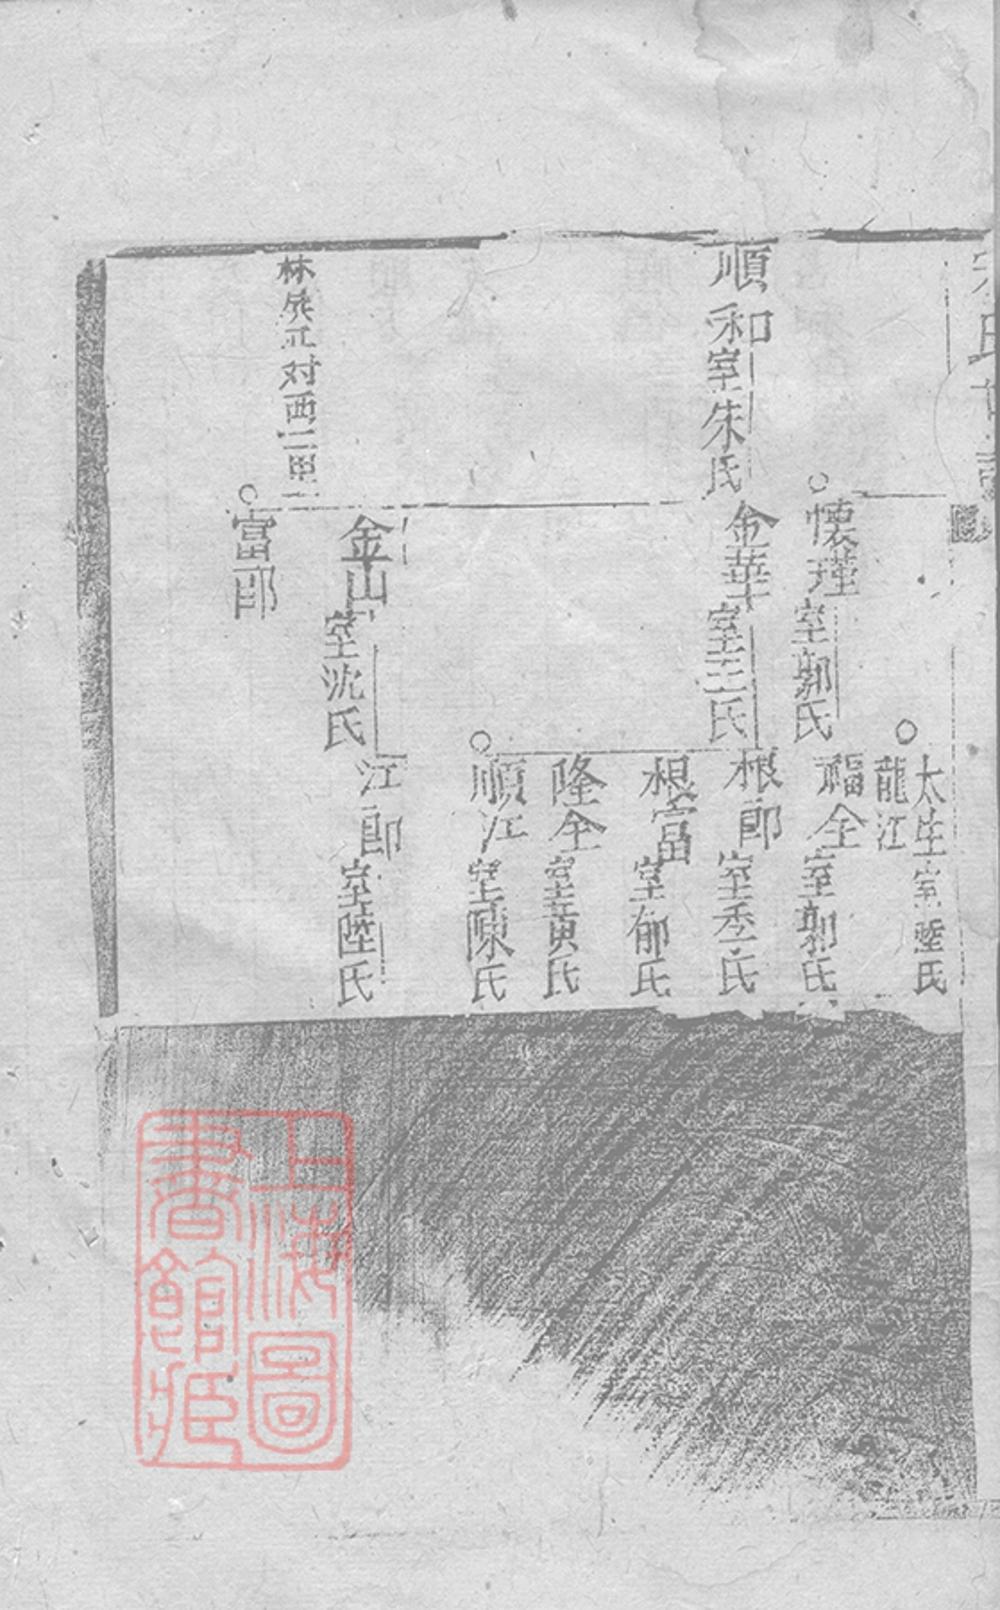 氏
太生室陸氏
龍江
懷瑾室郭氏
福全室郭氏
順和室朱氏
金華室王氏
根郎室季氏
根富室郁氏
隆全室黃氏
順江室陳氏
金山室沈氏
江郎室陸氏
林
对西二里
富郎
上海圖
書館藏